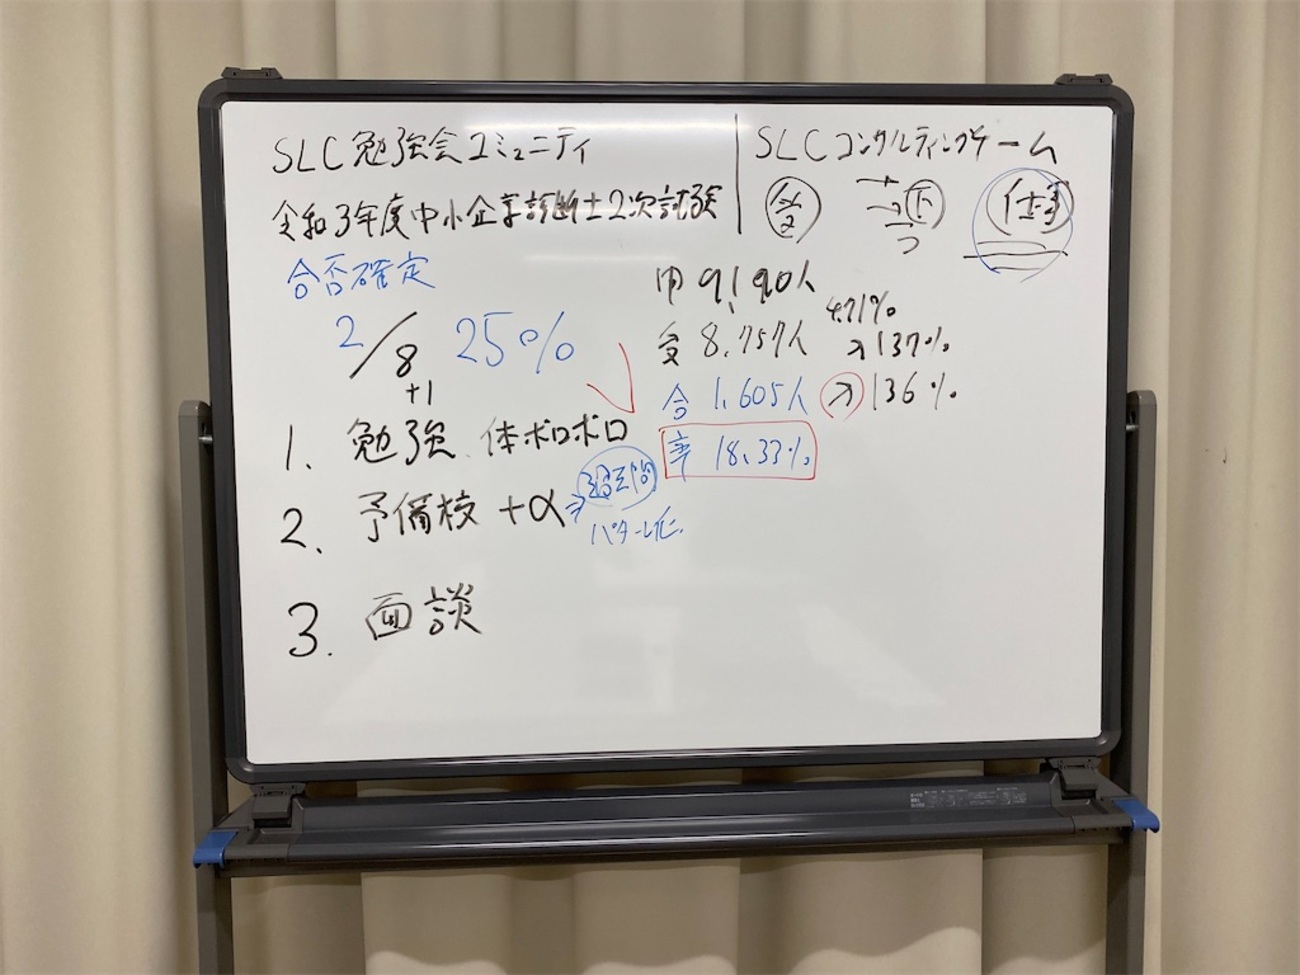 SLC勉強会コミュニティ
令和3年度中小企業診断士2次試験
合否確定
2/8 25%
+1
1. 勉強、体ボロボロ
2. 予備校 +α⇒過去問
パターン化
3. 面談
SLCコンサルティングチーム
受 → 下 仕事
申 9,190人
4.71%
受 8,757人 ↗137%
合 1,605人 ↗136%
率 18.33%